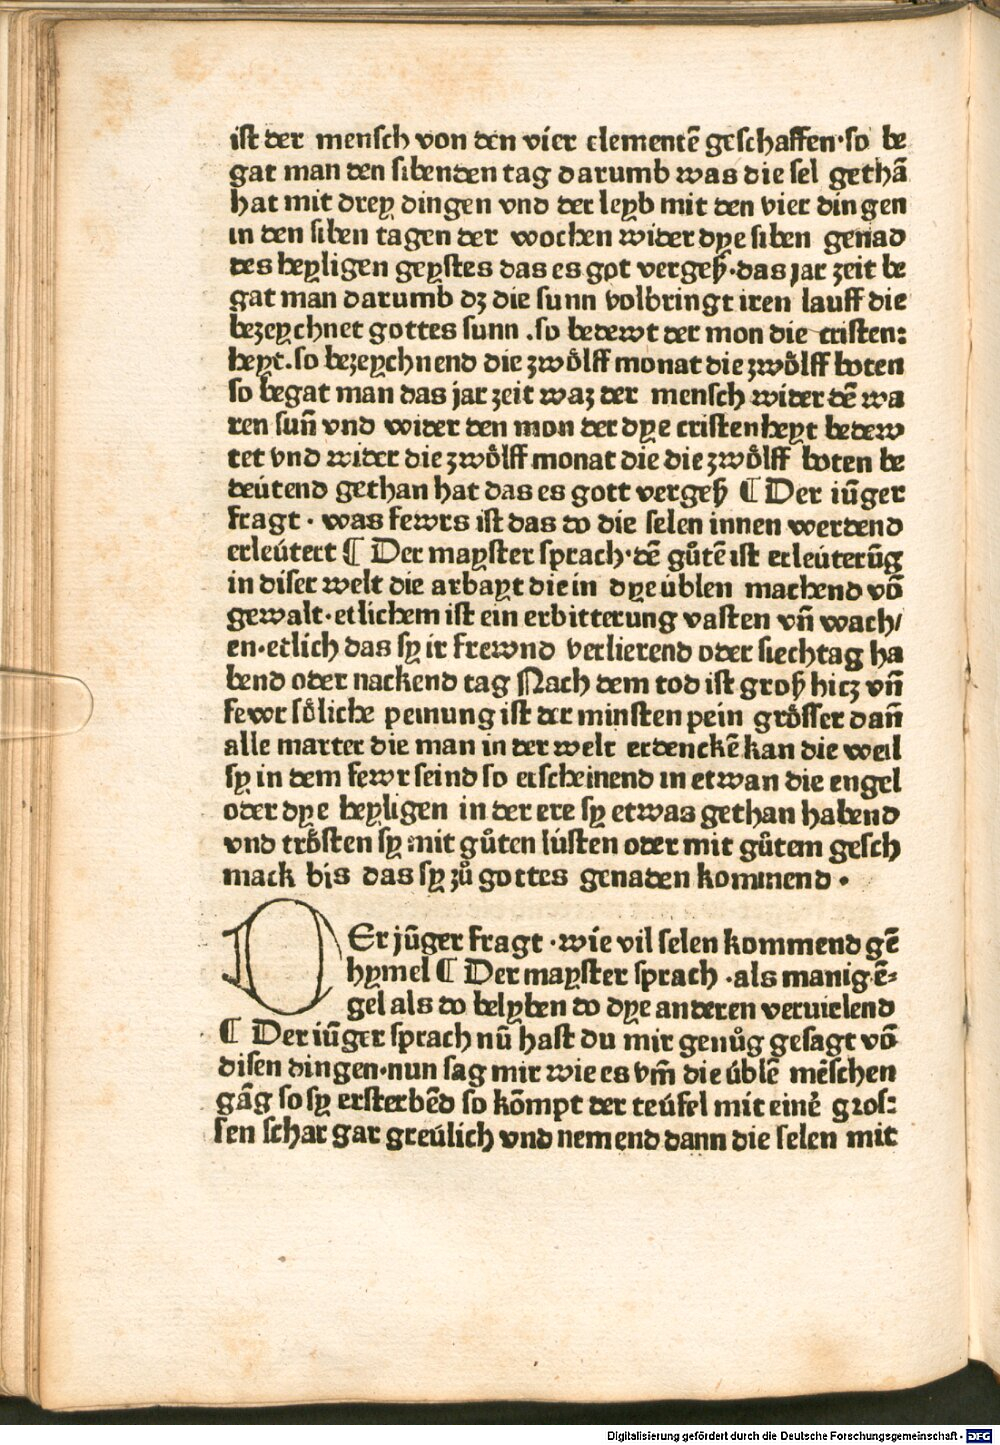 ist der mensch von den vier elementē geschaffen·so be
gat man den sibenden tag darumb was die sel gethā
hat mit drey dingen vnd der leyb mit den vier dingen
in den siben tagen der wochen wider dye siben genad
des heyligen geystes das es got vergeß·das jar zeit be
gat man darumb dz die sunn volbringt iren lauff die
bezeychnet gottes sunn .so bedewt der mon die cristen:
heyt.so bezeychnend die zwoͤlff monat die zwoͤlff boten
so begat man das jar zeit waz der mensch wider dē wa
ren sun̄ vnd wider den mon der dye cristenheyt bedew
tet vnd wider die zwoͤlff monat die die zwoͤlff boten be
deútend gethan hat das es gott vergeß ¶ Der iūger
fragt · was fewrs ist das do die selen innen werdend
erleútert ¶ Der mayster sprach·dē gůtē ist erleúterūg
in diser welt die arbayt die in dye úblen machend vō
gewalt·etlichem ist ein erbitterung vasten vn̄ wach/
en·etlich das sy ir frewnd verlierend oder siechtag ha
bend oder nackend tag Nach dem tod ist groß hicz vn̄
fewr soͤliche peinung ist der minsten pein groͤsser dan̄
alle marter die man in der welt erdenckē kan die weil
sy in dem fewr seind so erscheinend in etwan die engel
oder dye heyligen in der ere sy etwas gethan habend
vnd troͤsten sy mit gůten lústen oder mit gůtem gesch
mack bis das sy zů gottes genaden kommend ·
DEr jūger fragt ·wie vil selen kommend gē
hymel ¶ Der mayster sprach ·als manig ē⸗
gel als do belyben do dye anderen vervielend
¶ Der iūger sprach nū hast du mir genůg gesagt vō
disen dingen·nun sag mir wie es vm̄ die úblē mēschen
gāg so sy ersterbēd so kōmpt der teúfel mit einē gros:
sen schar gar greúlich vnd nemend dann die selen mit
Digitalisierung gefördert durch die Deutsche Forschungsgemeinschaft - DFG